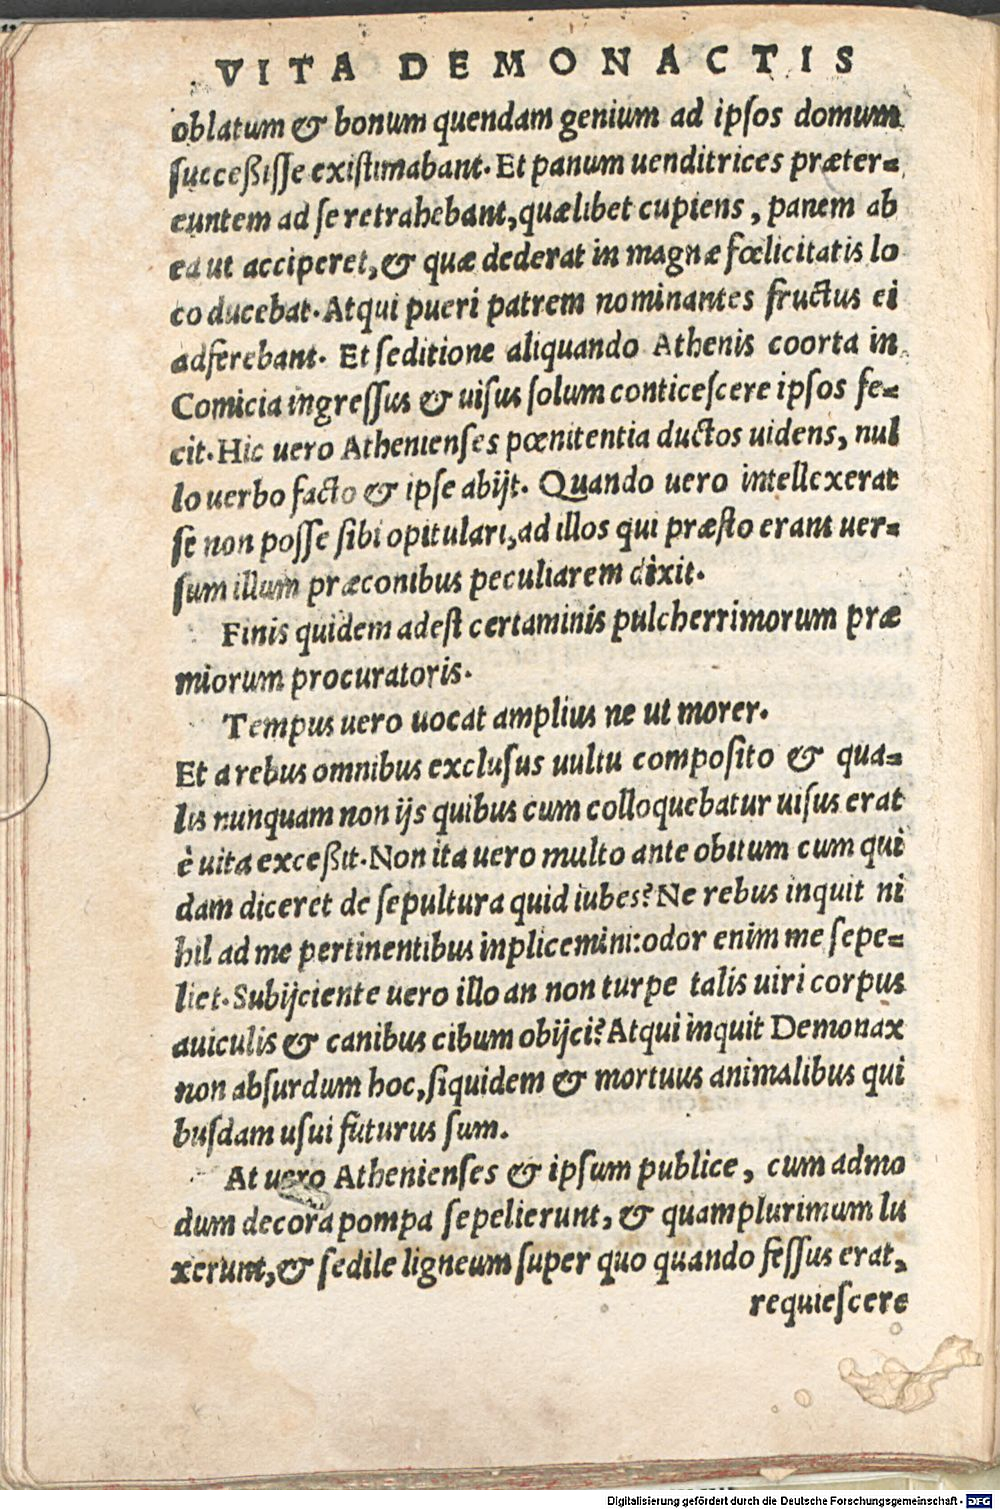 VITA DEMONACTIS
oblatum & bonum quendam genium ad ipsos domum
succeßisse existimabant. Et panum uenditrices præter-
euntem ad se retrahebant, quælibet cupiens, panem ab
ea ut acciperet, & quæ dederat in magnæ fœlicitatis lo
co ducebat. Atqui pueri patrem nominantes fructus ei
adferebant. Et seditione aliquando Athenis coorta in
Comicia ingressus & uisus solum conticescere ipsos fe-
cit. Hic uero Athenienses pœnitentia ductos uidens, nul
lo uerbo facto & ipse abijt. Quando uero intellexerat
se non posse sibi opitulari, ad illos qui præsto erant uer-
sum illum præconibus peculiarem dixit.
Finis quidem adest certaminis pulcherrimorum præ
miorum procuratoris.
Tempus uero uocat amplius ne ut morer.
Et a rebus omnibus exclusus uultu composito & qua-
lis nunquam non ijs quibus cum colloquebatur uisus erat
è uita exceßit. Non ita uero multo ante obitum cum qui
dam diceret de sepultura quid iubes? Ne rebus inquit ni
hil ad me pertinentibus inplicemini: odor enim me sepe-
liet. Subijciente uero illo an non turpe talis uiri corpus
auiculis & canibus cibum obijci? Atqui inquit Demonax
non absurdum hoc, siquidem & mortuus animalibus qui
busdam usui futurus sum.
At uero Athenienses & ipsum publice, cum admo
dum decora pompa sepelierunt, & quamplurimum lu
xerunt, & sedile ligneum super quo quando fessus erat,
requiescere
Digitalisierung gefördert durch die Deutsche Forschungsgemeinschaft - DFG